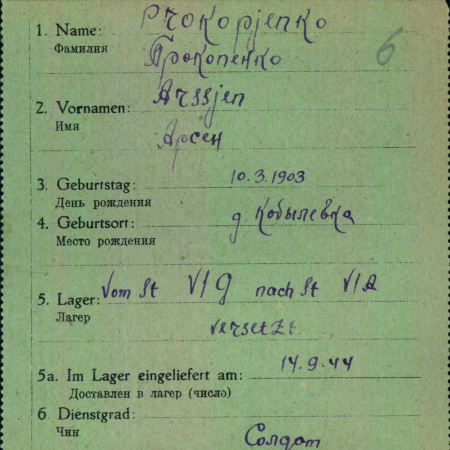 1. Name: Prokopjenko
Фамилия
Прокопенко
6
2. Vornamen: Arssjen
Имя
Арсен
3. Geburtstag: 10.3.1903
День рождения
4. Geburtsort: д. Кобылевка
Место рождения
5. Lager: Vom St VI G nach St VI A
Лагер
versetzt
5a. Im Lager eingeliefert am: 14.9.44
Доставлен в лагер (число)
6. Dienstgrad:
Чин
Солдат